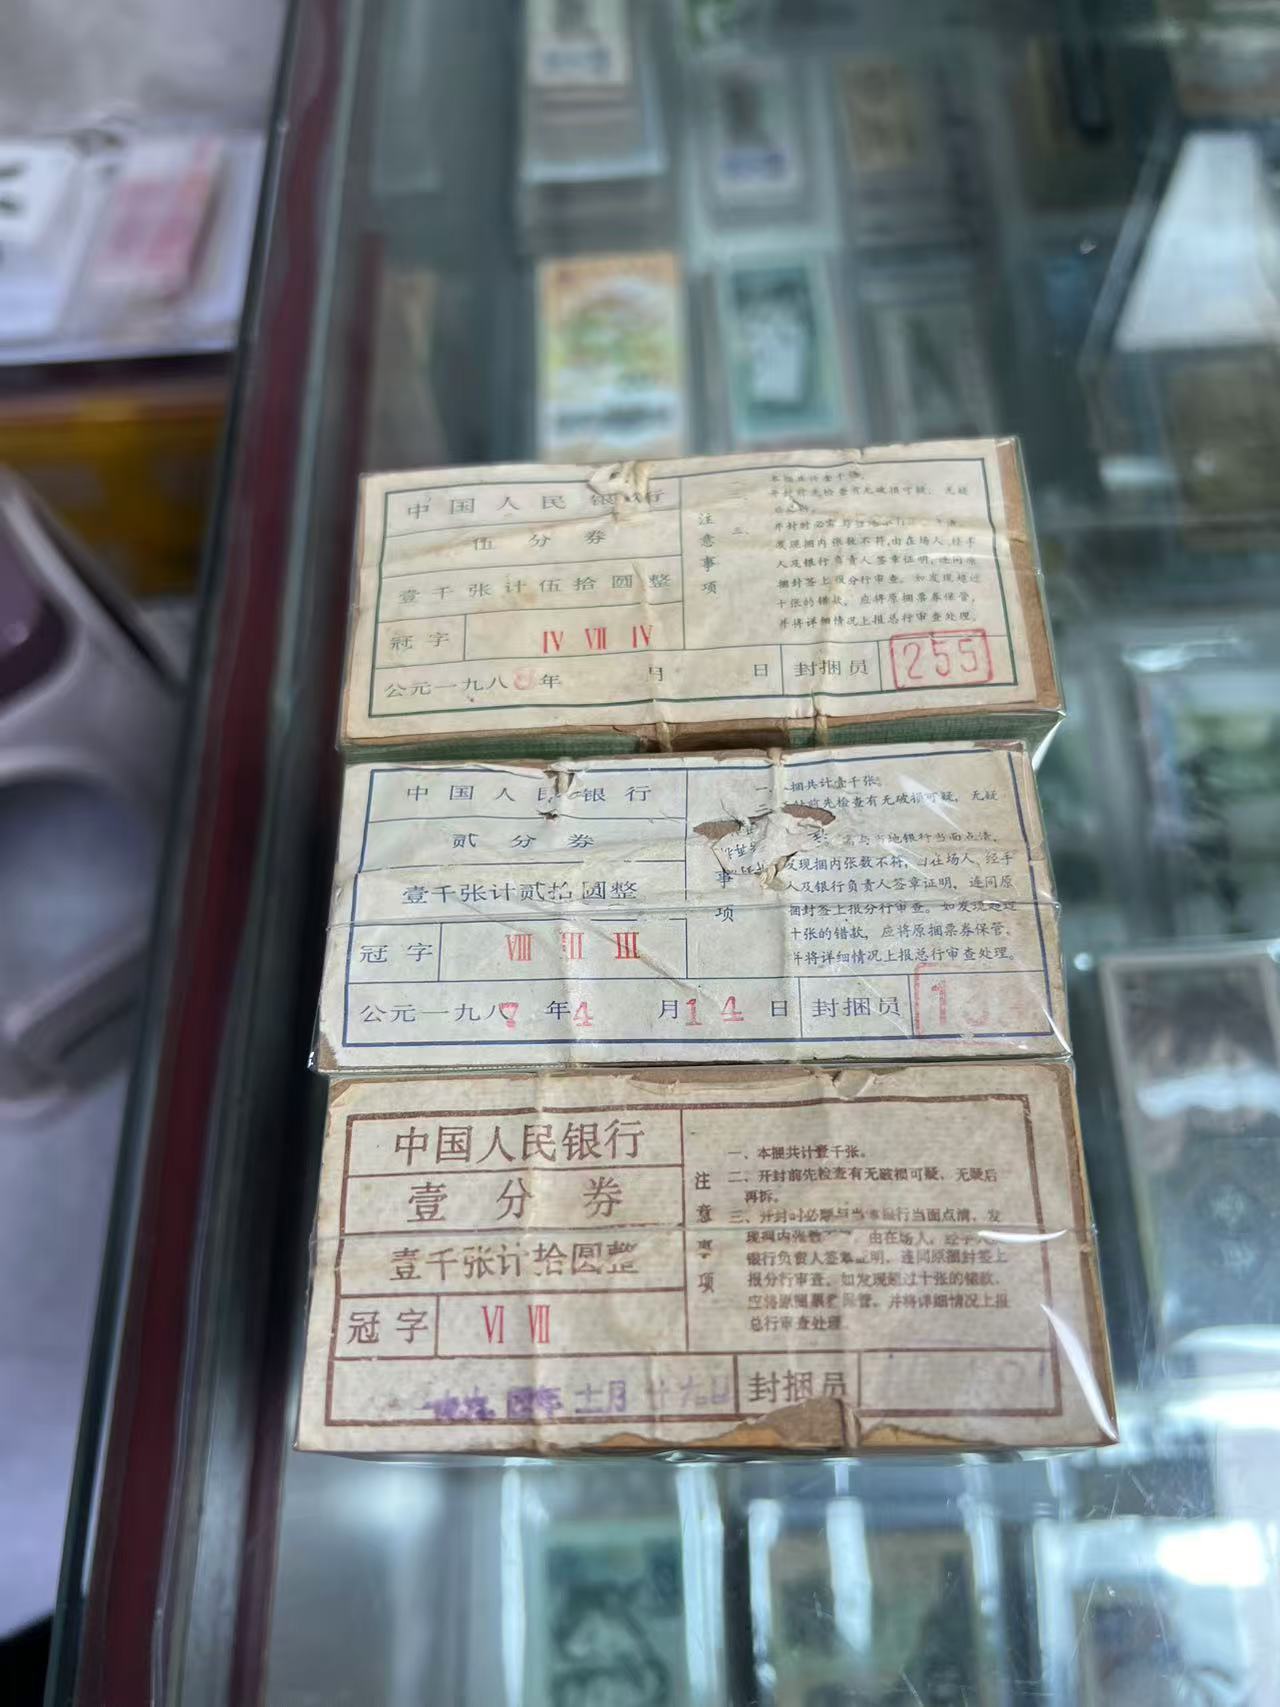 中国人民银行
伍分券
壹千张计伍拾圆整
冠字 IV VII IV
公元一九八8年 月 日 封捆员 255
注意事项
本捆共计壹千张。
开封前先检查有无破损可疑，无疑
三、开封时必需与
发现捆内张数不符,由在场人,经手
人及银行负责人签章证明,连同原
捆封签上报分行审查。如发现超过
十张的错款，应将原捆票券保管，
并将详细情况上报总行审查处理。
中国人民银行
贰分券
壹千张计贰拾圆整
冠字 VIII III III
公元一九八7年4月14日 封捆员
事项
一、 捆共计壹千张。
二、 封前先检查有无破损可疑，无疑
需与当地银行当面点清，
发现捆内张数不符，由在场人、经手
人及银行负责人签章证明，连同原
捆封签上报分行审查。如发现超过
十张的错款，应将原捆票券保管，
并将详细情况上报总行审查处理。
中国人民银行
壹分券
壹千张计拾圆整
冠字 VI VII
四年十一月十九日 封捆员
注意事项
一、本捆共计壹千张。
二、开封前先检查有无破损可疑，无疑后
再拆。
三、开封时必需与当地银行当面点清，发
现捆内张数 由在场人，经手人
银行负责人签章证明，连同原捆封签上
报分行审查。如发现超过十张的错款，
应将原捆票券保管，并将详细情况上报
总行审查处理。